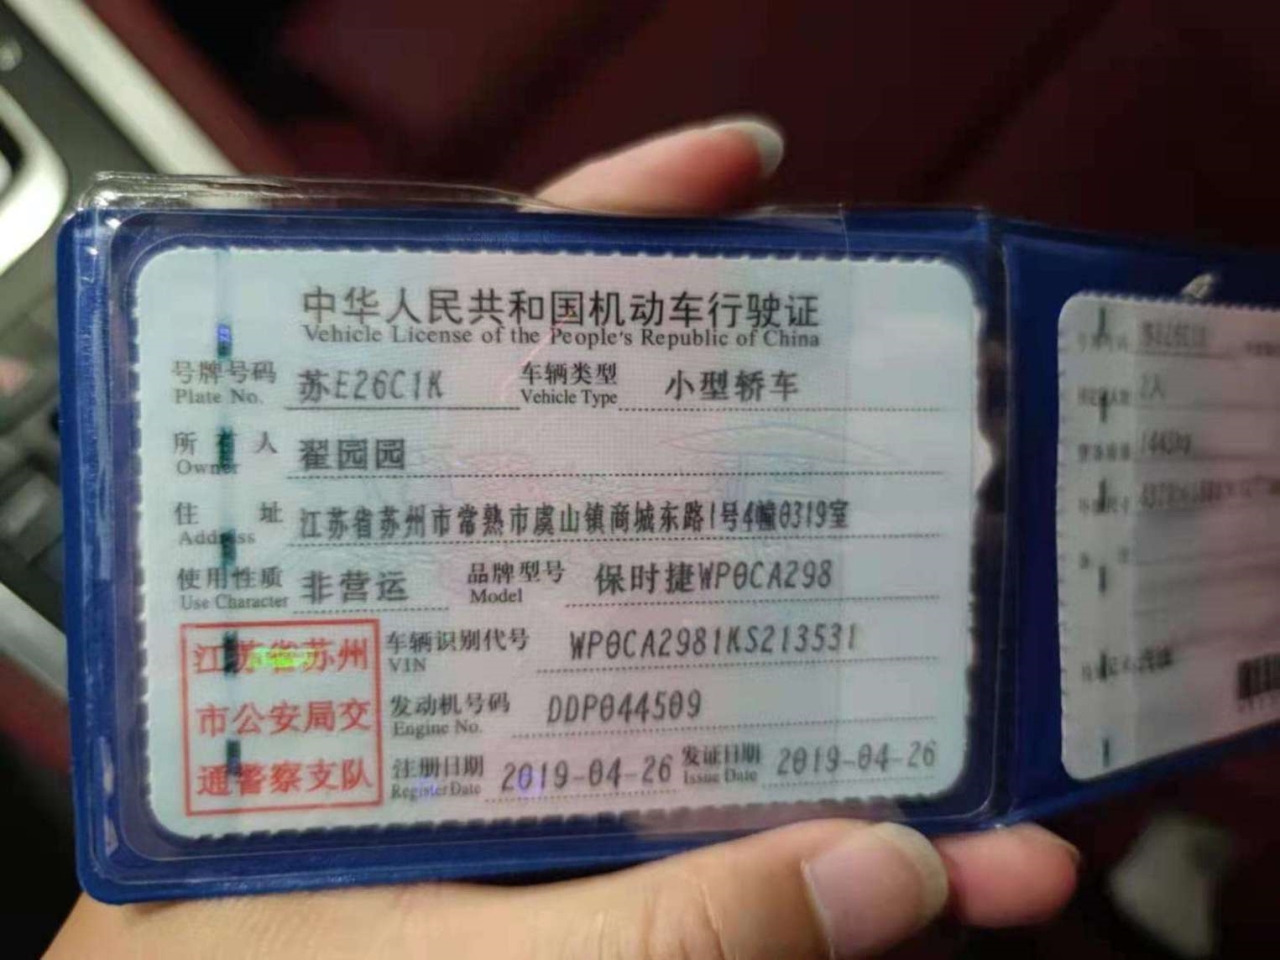 中华人民共和国机动车行驶证
Vehicle License of the People's Republic of China
号牌号码 苏E26C1K 车辆类型 小型轿车
Plate No. Vehicle Type
所有人 翟园园
Owner
住址 江苏省苏州市常熟市虞山镇商城东路1号4幢0319室
Address
使用性质 非营运 品牌型号 保时捷WP0CA298
Use Character Model
江苏省苏州
市公安局交
通警察支队
车辆识别代号 WP0CA2981KS213531
VIN
发动机号码 DDP044509
Engine No.
注册日期 2019-04-26 发证日期 2019-04-26
Register Date Issue Date
2人